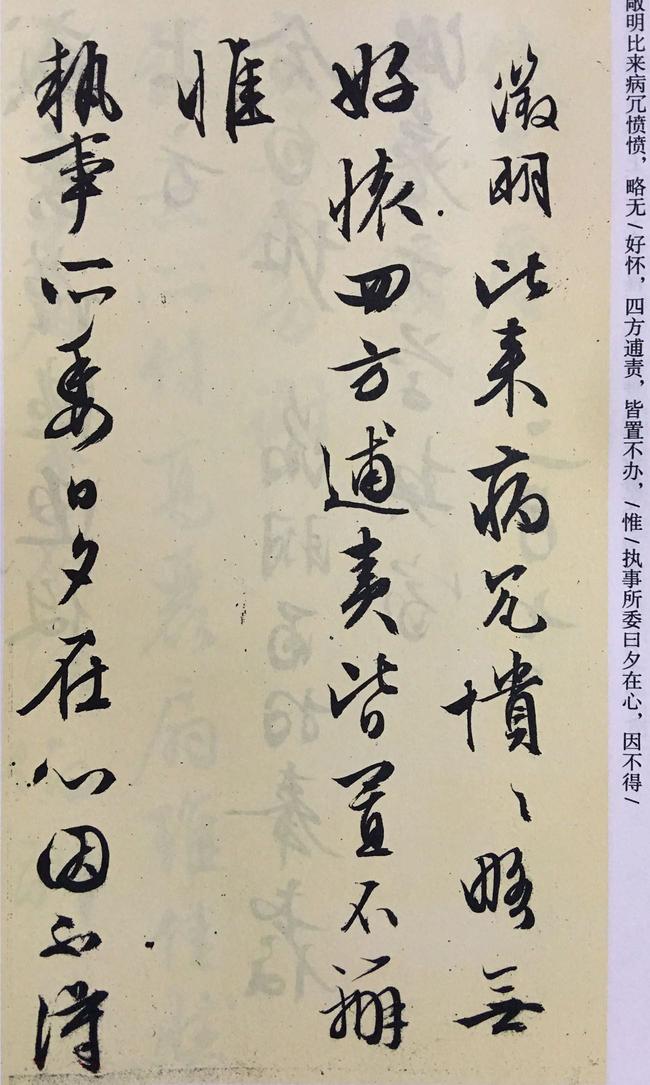 明比来病冗愤愤，略无/好怀，四方逋责，皆置不办，/惟/执事所委日夕在心，因不得/
徵明比来病冗憒〻略無
好懷四方逋責皆置不辦
惟
執事所委日夕在心因不得